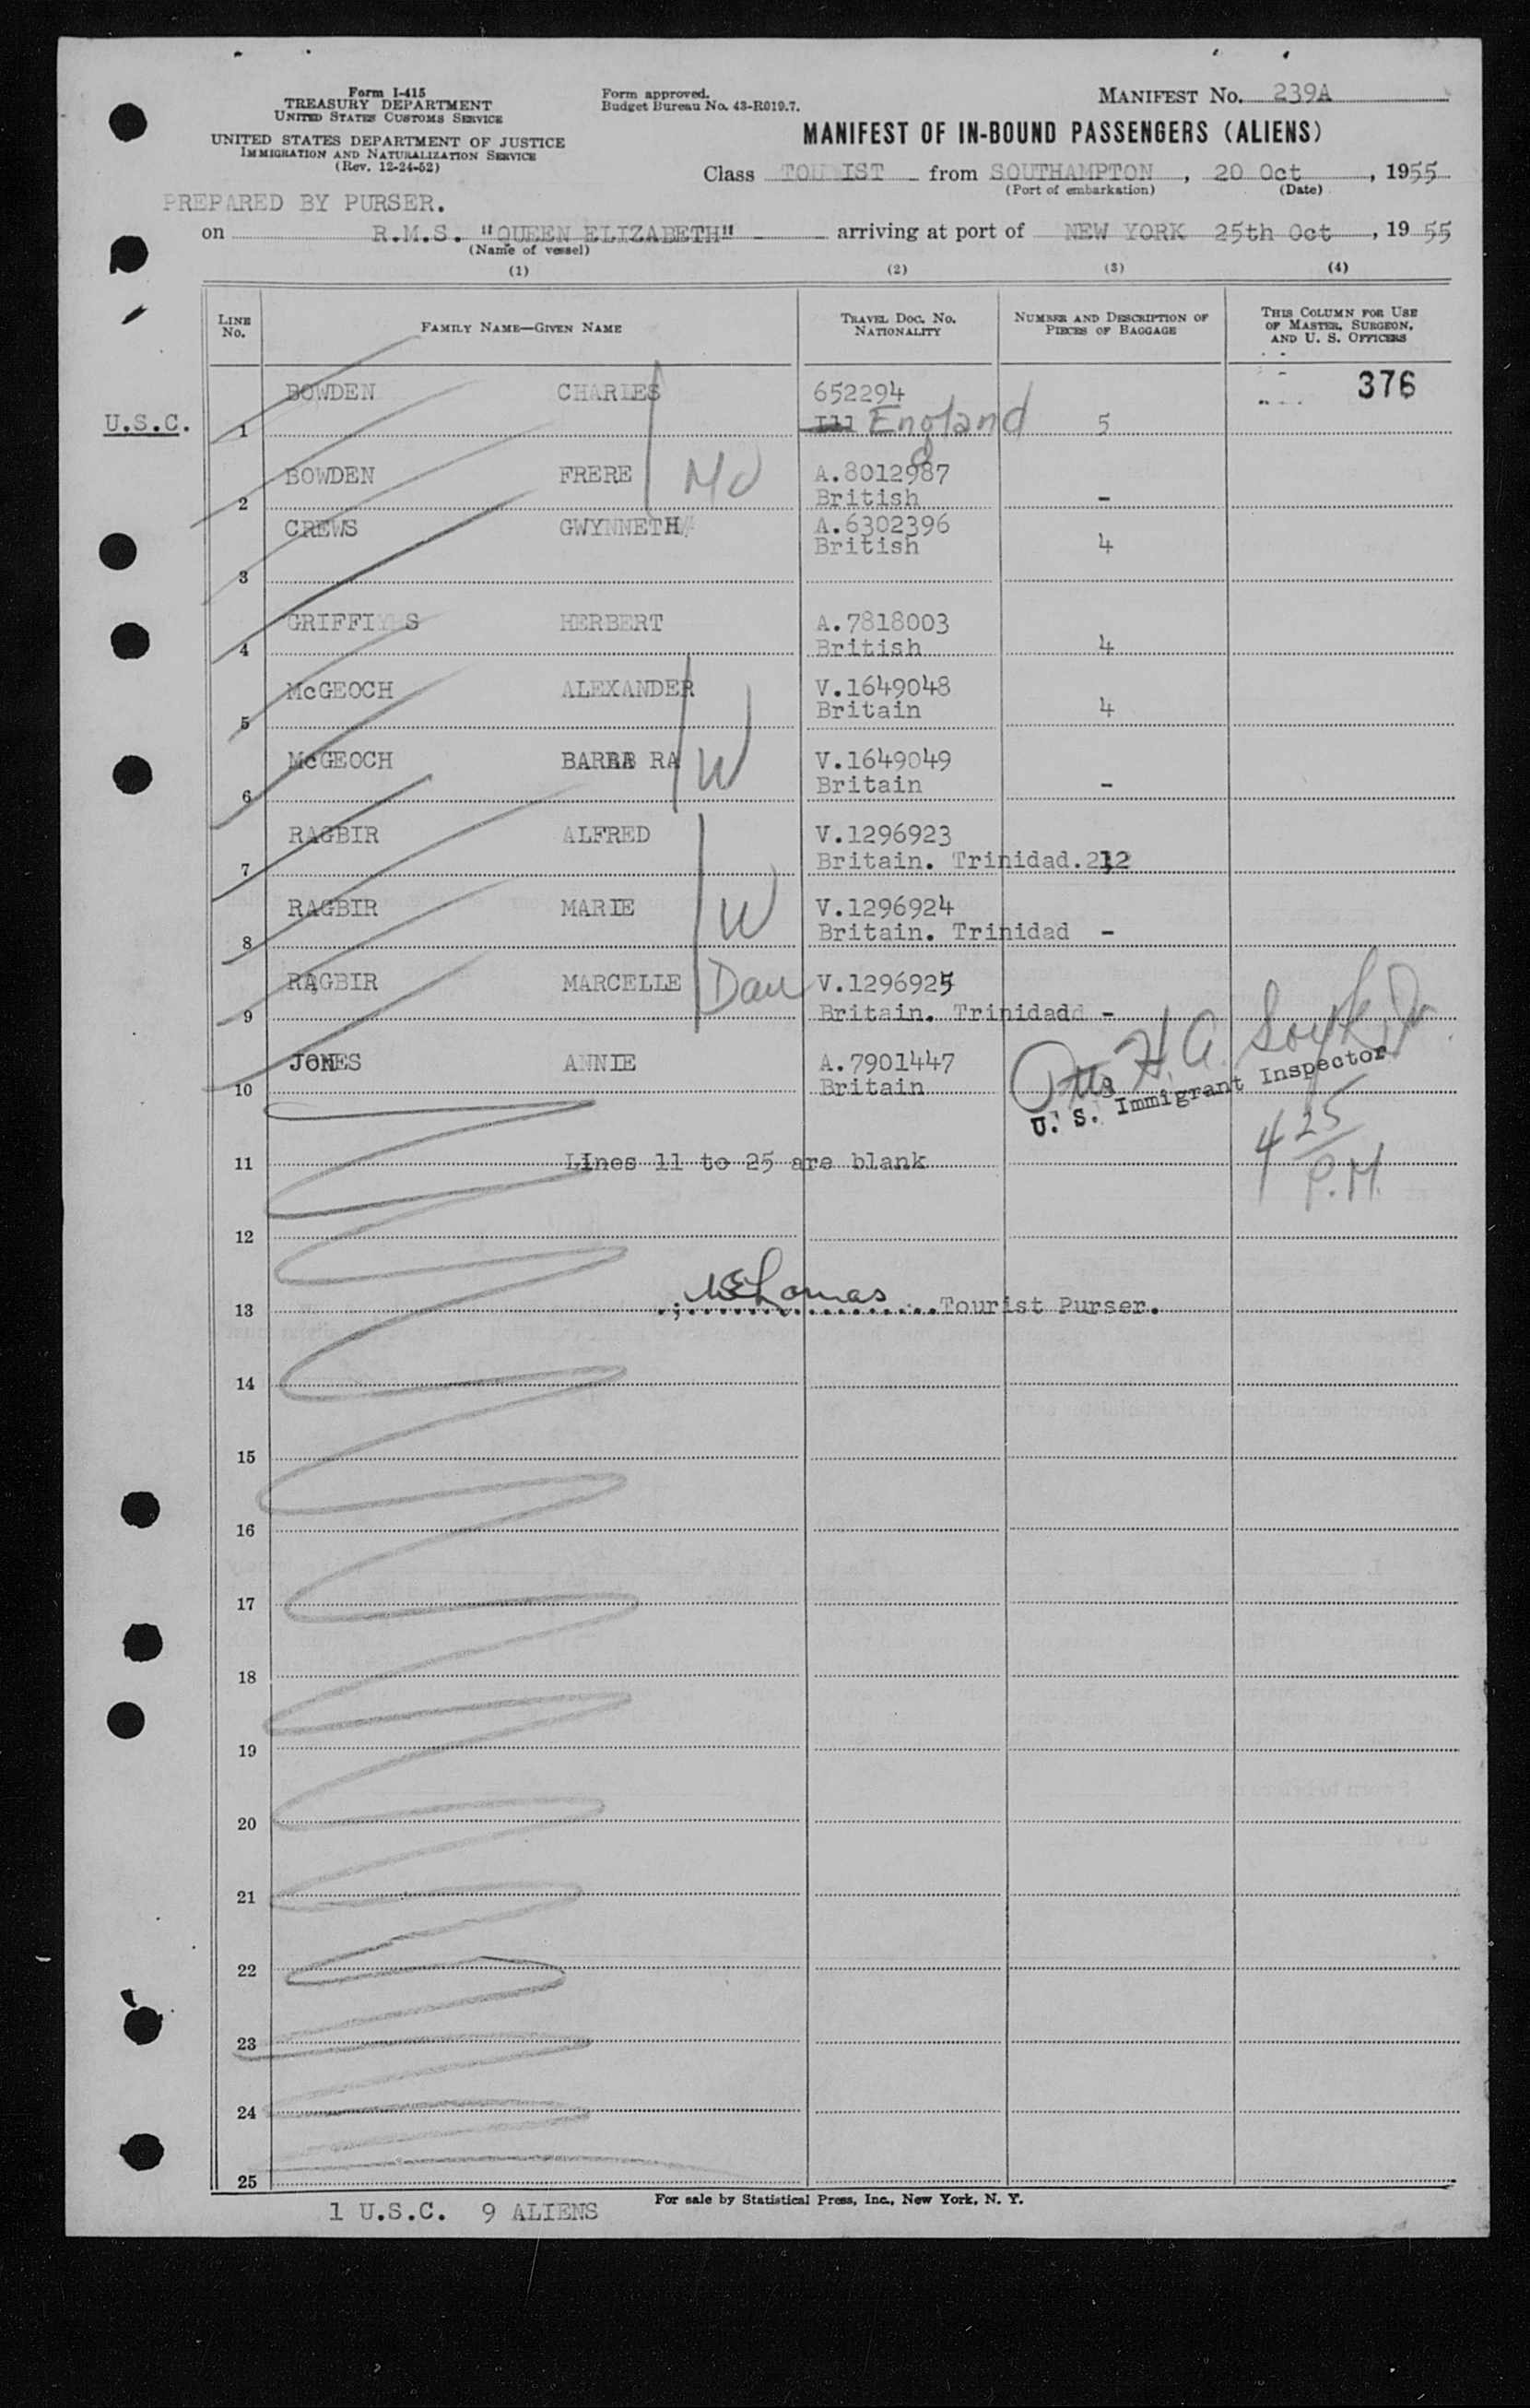 Form I-415
TREASURY DEPARTMENT
UNITED STATES CUSTOMS SERVICE
UNITED STATES DEPARTMENT OF JUSTICE
IMMIGRATION AND NATURALIZATION SERVICE
(Rev. 12-24-52)
Form approved.
Budget Bureau No. 43-R019.7.
MANIFEST No. 239A
MANIFEST OF IN-BOUND PASSENGERS (ALIENS)
Class TOURIST from SOUTHAMPTON, 20 Oct, 1955
(Port of embarkation) (Date)
PREPARED BY PURSER.
on R.M.S. "QUEEN ELIZABETH" arriving at port of NEW YORK 25th Oct, 19 55
(Name of vessel)
(1) (2) (3) (4)
LINE No. FAMILY NAME—GIVEN NAME TRAVEL DOC. No. NATIONALITY NUMBER AND DESCRIPTION OF PIECES OF BAGGAGE THIS COLUMN FOR USE OF MASTER, SURGEON, AND U. S. OFFICERS
BOWDEN CHARLES 652294 376
U.S.C. 1 Ill England 5
BOWDEN FRERE A.8012987
2 British -
CREWS GWYNNETH A.6302396
British 4
3
GRIFFI S HERBERT A.7818003
4 British 4
McGEOCH ALEXANDER V.1649048
5 Britain 4
McGEOCH BARBA RA W V.1649049
6 Britain -
RAGBIR ALFRED V.1296923
7 Britain. Trinidad.
RAGBIR MARIE W V.1296924
8 Britain. Trinidad -
RAGBIR MARCELLE Dau V.1296925
9 Britain. Trinidad -
JONES ANNIE A.7901447
10 Britain 3
H. A.
U. S. Immigrant Inspector
4 25 P.M.
11 LInes 11 to 25 are blank
12
13 Tourist Purser.
14
15
16
17
18
19
20
21
22
23
24
25
1 U.S.C. 9 ALIENS
For sale by Statistical Press, Inc., New York, N. Y.